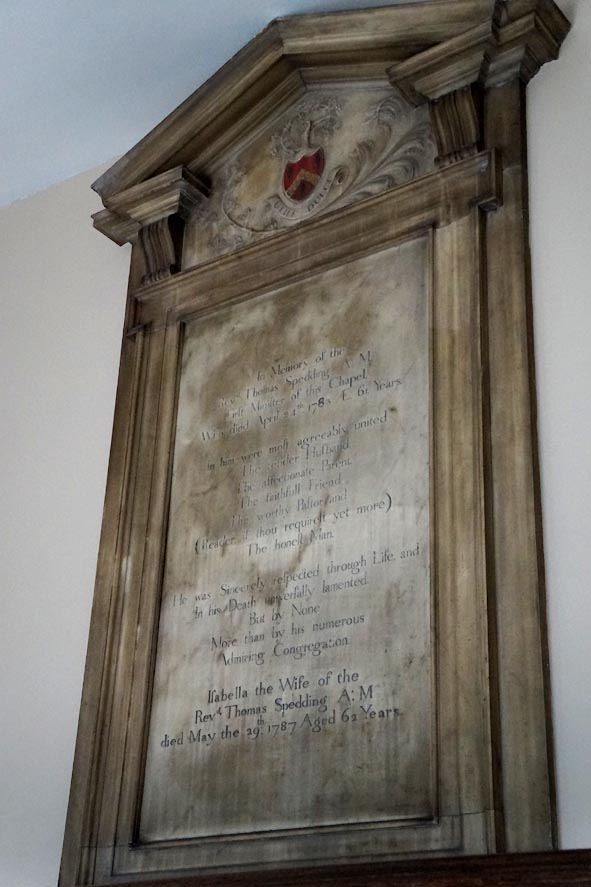 UTILE DULCI
In Memory of the
Rev.d Thomas Spedding A: M.
First Minister of this Chapel,
Who died April 24th 1783 Æ. 61. Years.
In him were moſt agreeably united
The tender Huſband,
The affectionate Parent,
The faithfull Friend,
The worthy Paſtor, and
(Reader if thou requireſt yet more)
The honeſt Man.
He was Sincerely reſpected through Life, and
In his Death univerſally lamented.
But by None
More than by his numerous
Admiring Congregation.
Iſabella the Wife of the
Rev.d Thomas Spedding A: M
died May the 29.th 1787 Aged 62 Years.